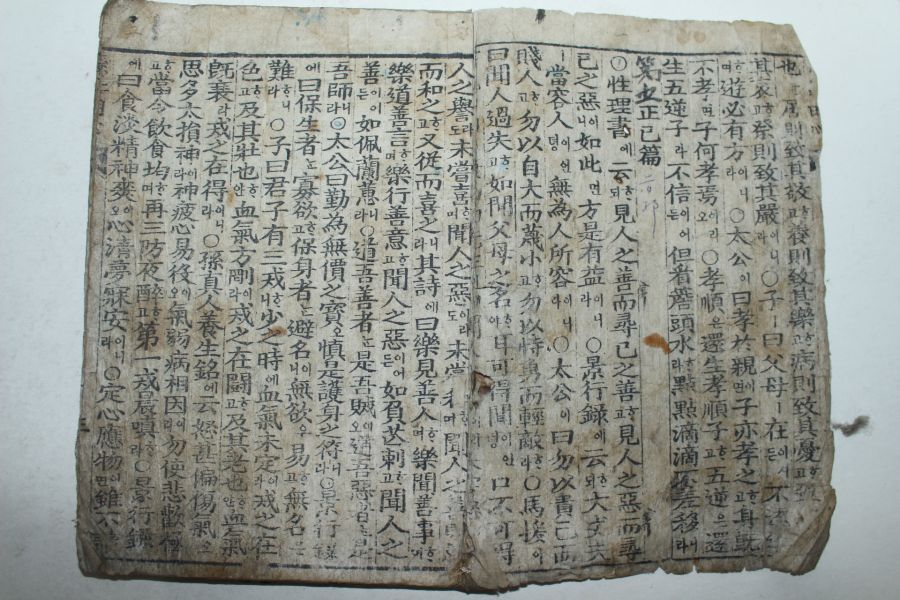 也 居則致其敬고養則致其樂고病則致其憂고
其哀고祭則致其嚴이니라○子ㅣ曰父母ㅣ在어시든不遠
遊며遊必有方이니라○太公이曰孝於親이면子亦孝之고身旣
不孝면子何孝焉이리오○孝順은還生孝順子고五逆은還
生五逆子라不信이어든但看簷頭水라點點滴滴不差移니라
第五正己篇
○性理書에云호ᄃᆡ見人之善而尋己之善고見人之惡而尋
己之惡이니如此면方是有益이니라○景行錄에云호ᄃᆡ大丈夫
ㅣ當容人이언졍無爲人所容이니라○太公이曰勿以貴己而
賤人고勿以自大而蔑小고勿以恃勇而輕敵이니라○馬援이
曰聞人過失이어든如聞父母之名야耳可得聞이언졍口不可得
人之譽라도未嘗喜며聞人之惡이라도未嘗和며聞人之
而和之고又從而喜之니라其詩에曰樂見善人며樂聞善事며
樂道善言며樂行善意고聞人之惡이어든如負芒刺고聞人之
善이어든如佩蘭蕙니라○道吾善者는是吾賊이오道吾惡者는是
吾師니라○太公曰勤為無價之寶오愼是護身之符니라○景行錄
에曰保生者는寡欲고保身者는避名이니無欲은易고無名은
難니라○子曰君子有三戒니少之時에血氣未定이라戒之在
色고及其壯也안血氣方剛이라戒之在鬪고及其老也안血氣
旣衰라戒之在得이니라○孫真人養生銘에云怒甚偏傷氣오
思多太損神이라神疲心易役이오氣弱病相因이라勿使悲歡極고
當令飲食均며再三防夜醉고第一戒晨嗔라○景行錄
에曰食淡精神爽이오心清夢寐安이니라○定心應物이면雖不